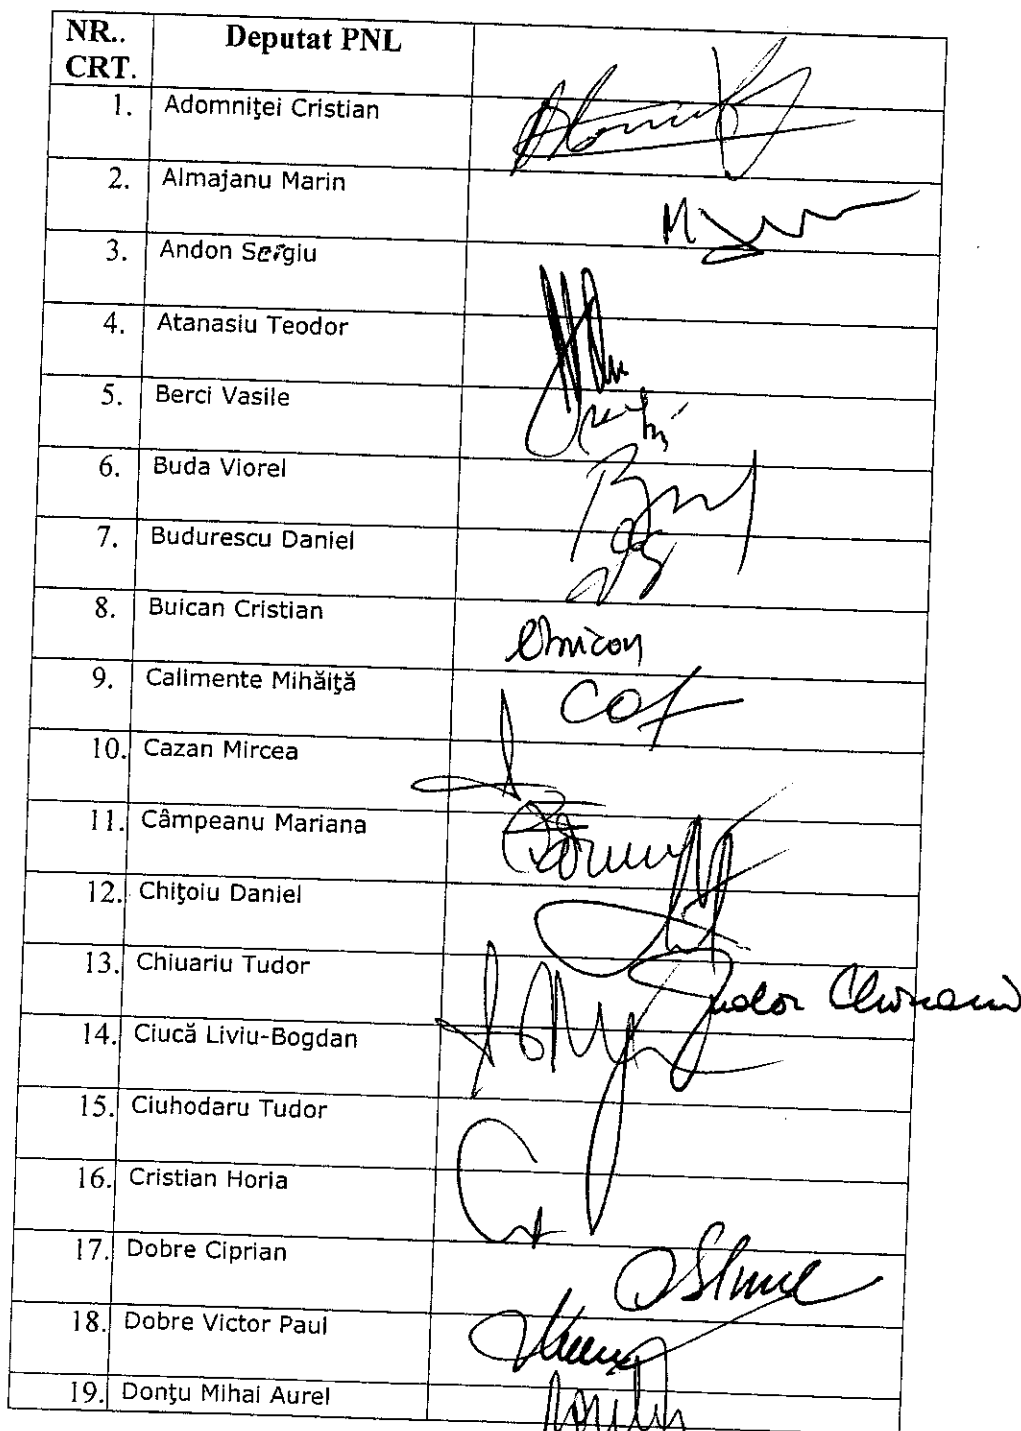 NR.. Deputat PNL
CRT.
1. Adomniței Cristian
2. Almajanu Marin
3. Andon Sergiu
4. Atanasiu Teodor
5. Berci Vasile
6. Buda Viorel
7. Budurescu Daniel
8. Buican Cristian
9. Calimente Mihăiţă
10. Cazan Mircea
11. Câmpeanu Mariana
12. Chiţoiu Daniel
13. Chiuariu Tudor
Tudor Chiuariu
14. Ciucă Liviu-Bogdan
15. Ciuhodaru Tudor
16. Cristian Horia
17. Dobre Ciprian
18. Dobre Victor Paul
19. Donţu Mihai Aurel